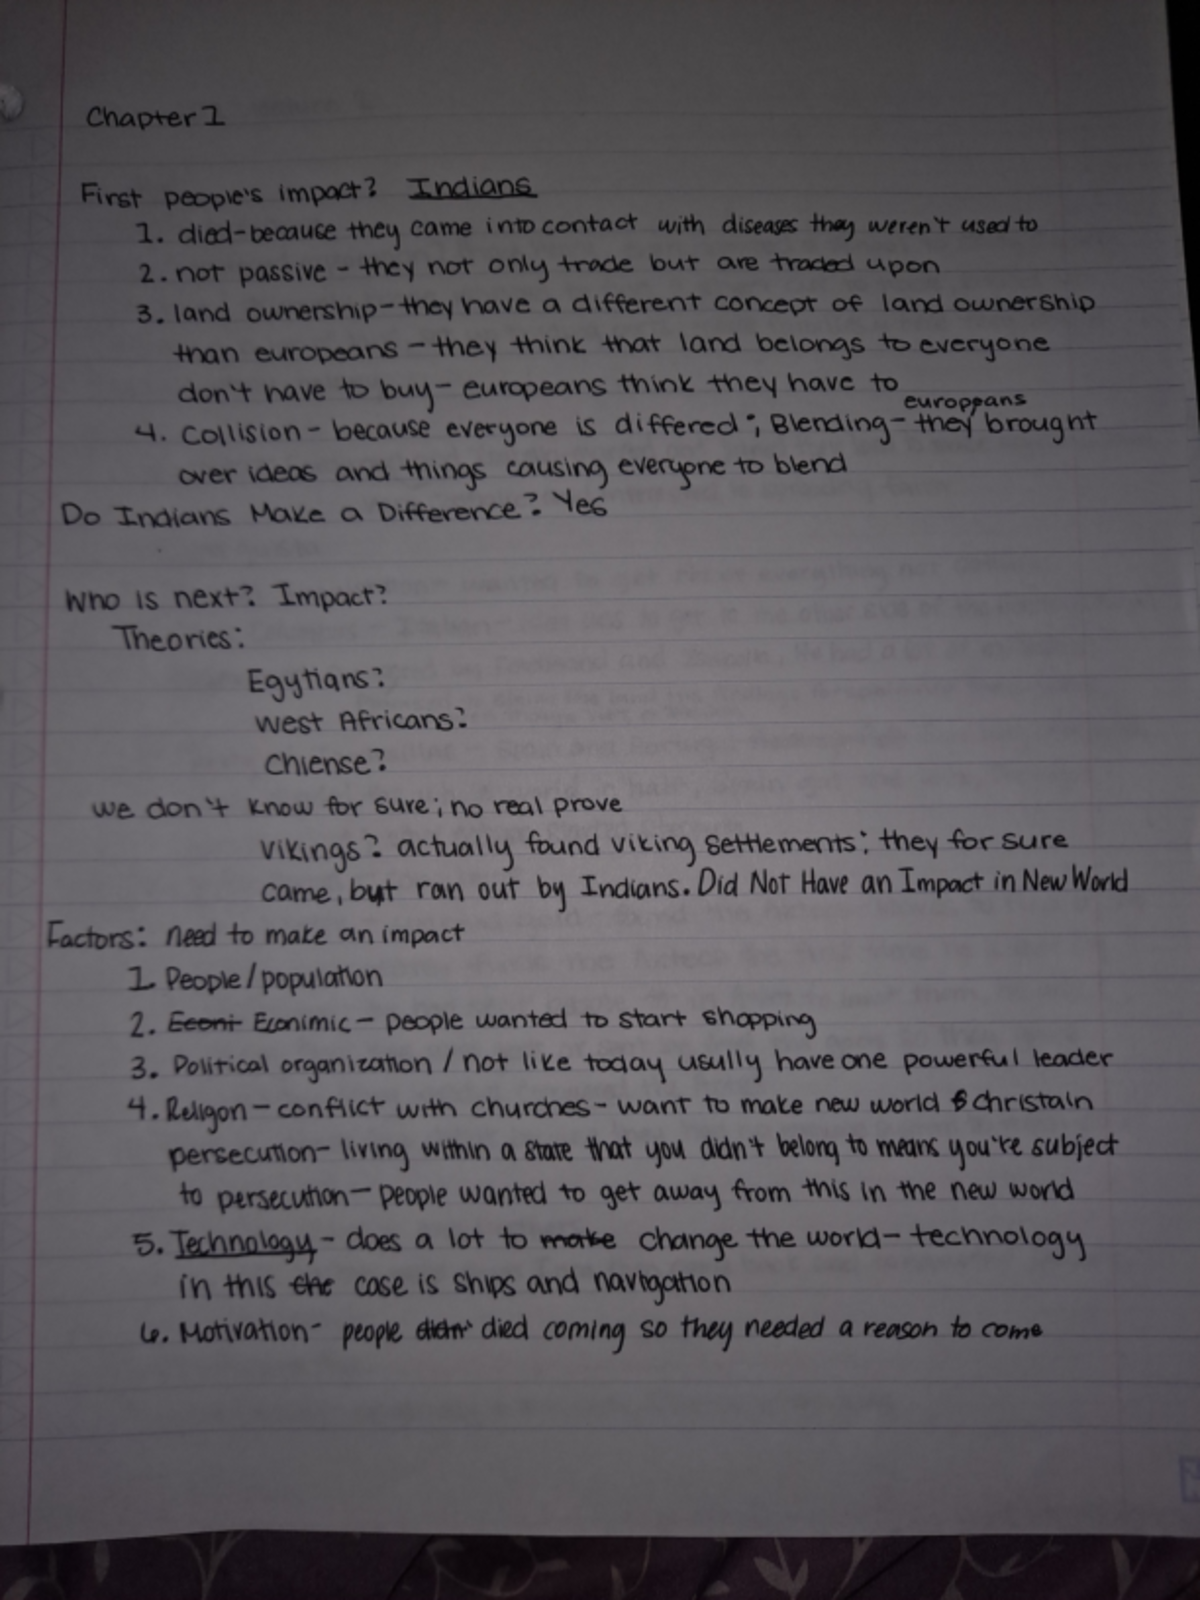 Chapter 1
First people's impact? Indians
1. died-because they came into contact with diseases they weren't used to
2. not passive - they not only trade but are traded upon
3. land ownership-they have a different concept of land ownership
than europeans - they think that land belongs to everyone
don't have to buy- europeans think they have to
europeans
4. Collision - because everyone is differed; Blending- they brought
over ideas and things causing everyone to blend
Do Indians Make a Difference? Yes
Who is next? Impact?
Theories:
Egytians?
West Africans?
Chiense?
we don't know for sure; no real prove
Vikings? actually found viking settlements; they for sure
came, but ran out by Indians. Did Not Have an Impact in New World
Factors: need to make an impact
1. People/population
2. Econi Econimic - people wanted to start shopping
3. Political organization / not like today usully have one powerful leader
4. Religon - conflict with churches - want to make new world christain
persecution- living within a state that you didn't belong to means you're subject
to persecution - people wanted to get away from this in the new world
5. Technology - does a lot to make change the world- technology
in this the case is ships and navigation
6. Motivation- people didn' died coming so they needed a reason to come